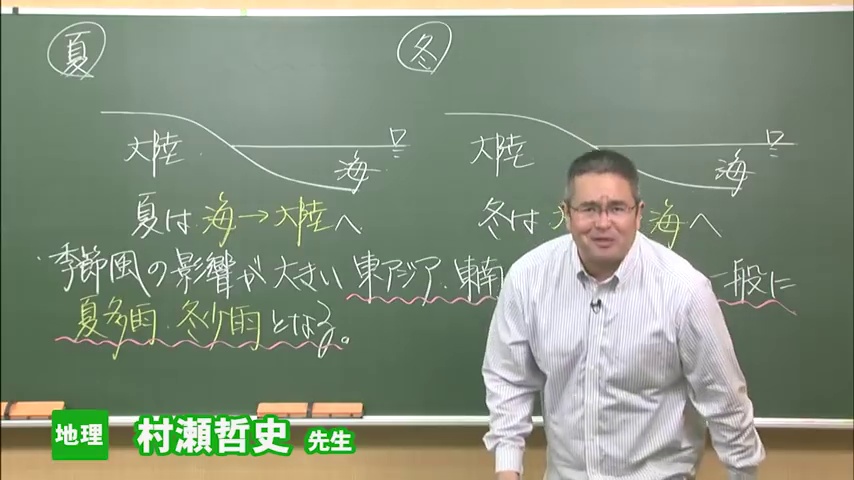 夏
冬
大陸
海
大陸
海
夏は 海→大陸へ
冬は 海へ
季節風の影響が大きい 東アジア・東南 一般に
夏多雨・冬少雨となる。
地理 村瀬哲史 先生